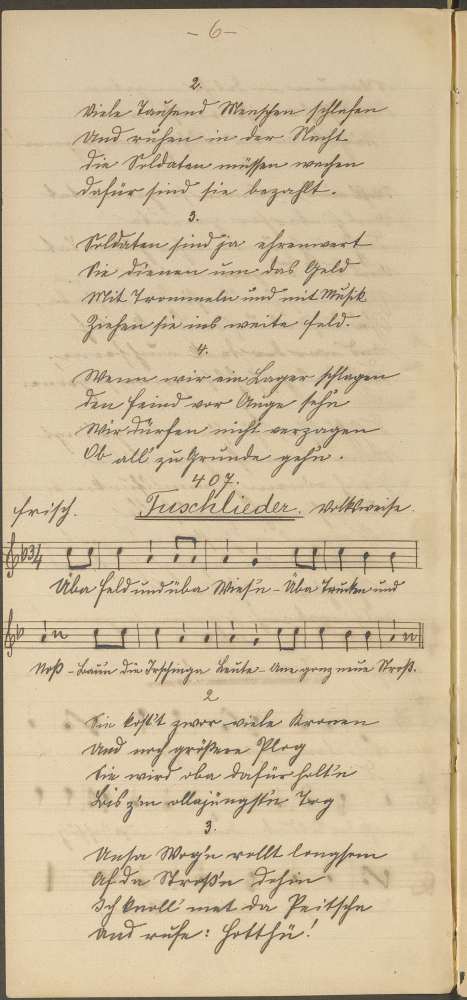 - 6 -
2.
Viele Tausend Menschen schlafen
Und ruhen in der Nacht
Die Soldaten müssen wachen
Dafür sind sie bezahlt.
3.
Soldaten sind ja ehrenwert
Sie dienen um das Geld
Mit Trommeln und mit Musik
Ziehen sie ins weite Feld.
4.
Wenn wir ein Lager schlagen
Den Feind vor Auge sehn
Wir dürfen nicht verzagen
Ob all' zu Grunde gehn.
407.
Frisch. Tuschlieder. Volksweise.
3/4
Üba Feld und üba Wies'n - Üba Trucken und
Noß - Baun die Leute - Ane gonz neue Stroß.
2
Sie kost't zwor viele Kronen
Und noch größere Plog
Sie wird oba dafür holt'n
Bis z'm ollajüngst'n Tog
3.
Unsa Wog'n rollt longsom
Af da Stroß'n dohin
Ich knoll' met da Peitsche
Und rufe: Hotthü!